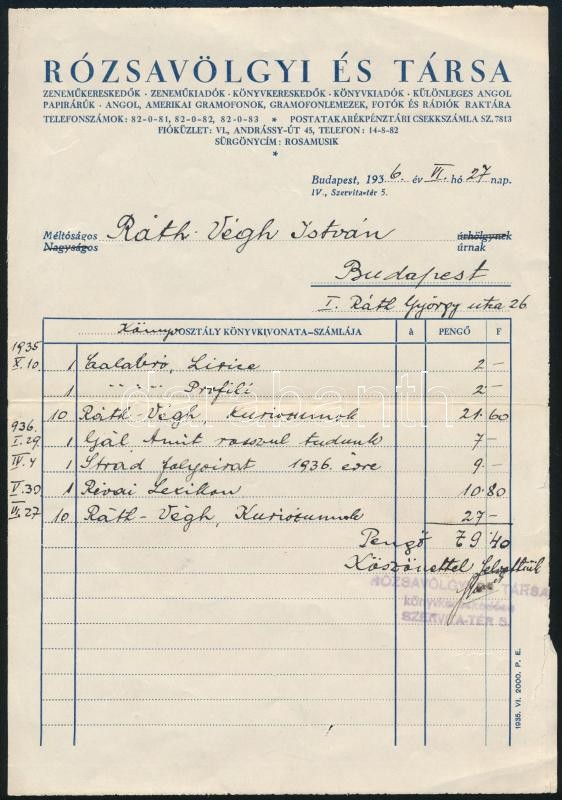 RÓZSAVÖLGYI ÉS TÁRSA
ZENEMŰKERESKEDŐK · ZENEMŰKIADÓK · KÖNYVKERESKEDŐK · KÖNYVKIADÓK · KÜLÖNLEGES ANGOL
PAPIRÁRÚK · ANGOL, AMERIKAI GRAMOFONOK, GRAMOFONLEMEZEK, FOTÓK ÉS RÁDIÓK RAKTÁRA
TELEFONSZÁMOK: 82-0-81, 82-0-82, 82-0-83 * POSTATAKARÉKPÉNZTÁRI CSEKKSZÁMLA SZ. 7813
FIÓKÜZLET: VI., ANDRÁSSY-ÚT 45, TELEFON: 14-8-82
SÜRGÖNYCÍM: ROSAMUSIK
*
Budapest, 1936 év VI. hó 27 nap.
IV., Szervita-tér 5.
Méltóságos Ráth-Végh István úrhölgynek
Nagyságos úrnak
Budapest
I. Ráth György utca 26
Könyv OSZTÁLY KÖNYVKIVONATA-SZÁMLÁJA à PENGŐ F
1935
X.10 1 Calabró, Lirice 2 –
1 " " " Profili 2 –
10 Ráth-Végh, Kuriozumok 21 60
936.
I.29 1 Gál Amit rosszul tudunk 7 –
IV.4 1 Strad folyoirat 1936. évre 9 –
V.30 1 Révai Lexikon 10 80
VI.27 10 Ráth-Végh, Kuriózumok 27 –
Pengő 79 40
Köszönettel felvettük
RÓZSAVÖLGYI ÉS TÁRSA
könyvkereskedése
SZERVITA-TÉR 5.
1935. VI. 2000. P. E.
darabanth.com